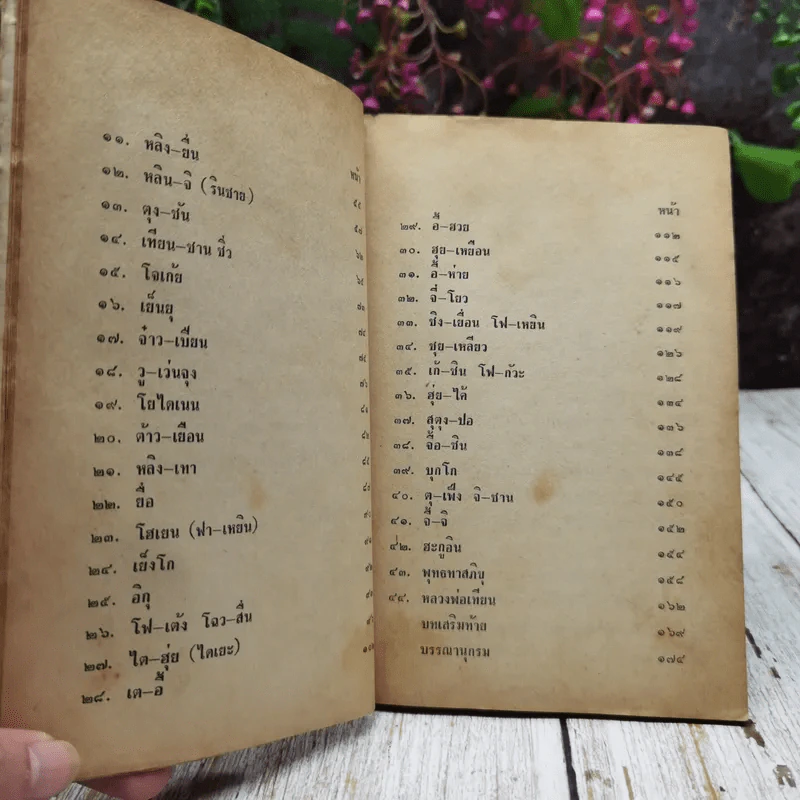 หน้า
๑๑. หลิง-ยื่น ๕๕
๑๒. หลิน-จิ (รินซาย) ๕๗
๑๓. ตุง-ซัน ๖๒
๑๔. เทียน-ซาน ชิ่ว ๖๕
๑๕. โจเก้ย
๑๖. เย็นยุ ๗๓
๑๗. จ๋าว-เบี้ยน ๗๔
๑๘. วู-เว่นจุง
๑๙. โยไดเนน
๒๐. ด้าว-เยือน ๘๒
๒๑. หลิง-เทา
๒๒. ยื่อ
๒๓. โฮเยน (ฟา-เหยิน)
๒๔. เย็งโก
๒๕. อิกุ
๒๖. โฟ-เต้ง โฉว-สื่น
๒๗. ได-ฮุ่ย (ไดเยะ)
๒๘. เต-อี้
หน้า
๒๙. อี้-ฮวย ๑๑๒
๓๐. ฮุย-เหยือน ๑๑๕
๓๑. อี้-ห่าย ๑๑๖
๓๒. จี่-โยว ๑๑๗
๓๓. ชิง-เยื่อน โฟ-เหยิน ๑๑๙
๓๔. ซุย-เหลียว ๑๒๖
๓๕. เก้-ซิน โฟ-ก้วะ ๑๒๘
๓๖. ฮุ่ย-ไต้ ๑๓๔
๓๗. สุตุง-ปอ ๑๓๖
๓๘. จื้อ-ซิน ๑๓๘
๓๙. บุกโก ๑๔๕
๔๐. ตุ-เฟ็ง จิ-ซาน ๑๕๐
๔๑. จี้-จิ ๑๕๒
๔๒. ฮะกูอิน ๑๕๔
๔๓. พุทธทาสภิขุ ๑๕๘
๔๔. หลวงพ่อเทียน ๑๖๒
บทเสริมท้าย ๑๖๙
บรรณานุกรม ๑๗๔